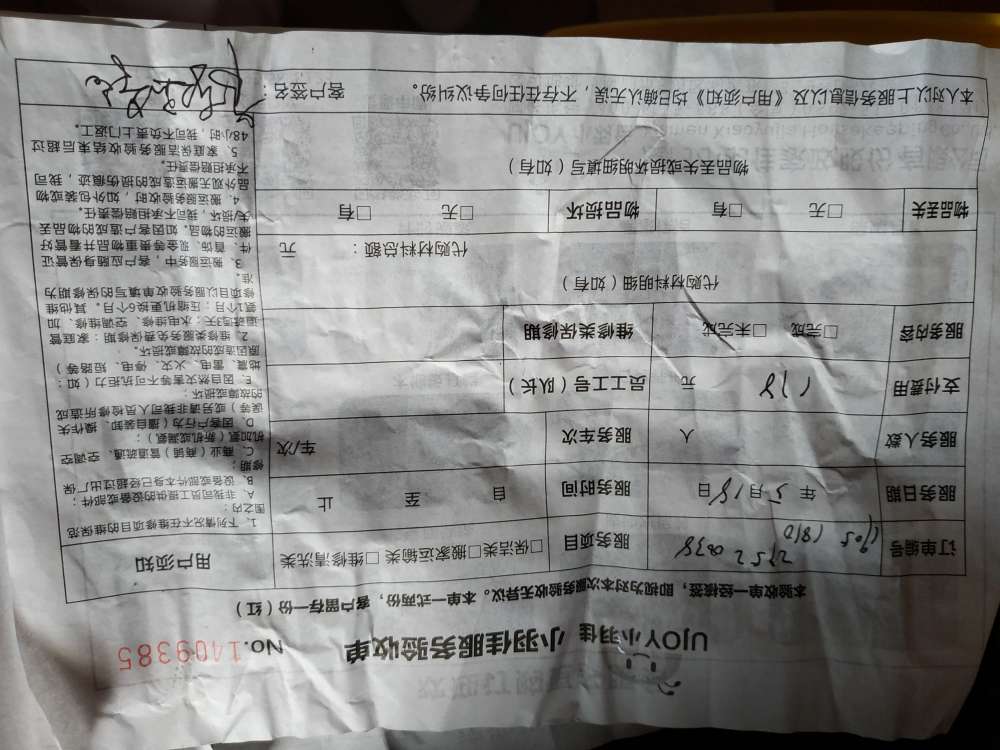 UJOY小羽佳 小羽佳服务验收单 No.1409385
本验收单一经核签，即视为对本次服务验收无异议。本单一式两份，客户留存一份（红）
订单编号 1905 1810 2752 0038 服务项目 □保洁类□搬家运输类□维修清洗类
服务日期 年5月18日 服务时间 自 至 止
服务人数 人 服务车次 车/次
支付费用 178 元 员工工号（队长）
服务内容 □完成 □未完成 维修类保修期
代购材料明细（如有）
代购材料总额： 元
物品丢失 □无 □有 物品损坏 □无 □有
物品丢失或损坏明细填写（如有）
用户须知
1、下列情况不在维修项目的维保范
围之内：
A、非我司员工提供的设备或部件；
B、设备或部件本身已经超过出厂保
修期；
C、商业（商铺）管道疏通、空调空
机加氨（新机或漏氨）；
D、因客户行为（擅自装卸、操作失
误等）或另请非我司人员检修所造成
的故障或损坏；
E、因自然灾害等不可抗拒力（如：
地震、雷电、火灾、停电、短路等）
原因造成的故障或损坏。
2、维修类服务免费保修期：家庭管
道疏通3天；水电维修、空调维修、加
氨1个月；压缩机更换6个月。其他维
修项目以服务验收单填写的保修期为
准。
3、搬运服务中，客户应随身保管证
件、首饰、现金等贵重物品并看管好
搬运的物品。如因客户造成的物品丢
失/损坏，我司不承担赔偿责任。
4、搬运服务验收时，如外包装或物
品外观无搬运造成的损伤痕迹，我司
不承担赔偿责任。
5、家庭保洁服务验收结束后超过
48小时，我司不负责上门返工。
本人对以上服务信息以及《用户须知》均已确认无误，不存在任何争议纠纷。 客户签名：